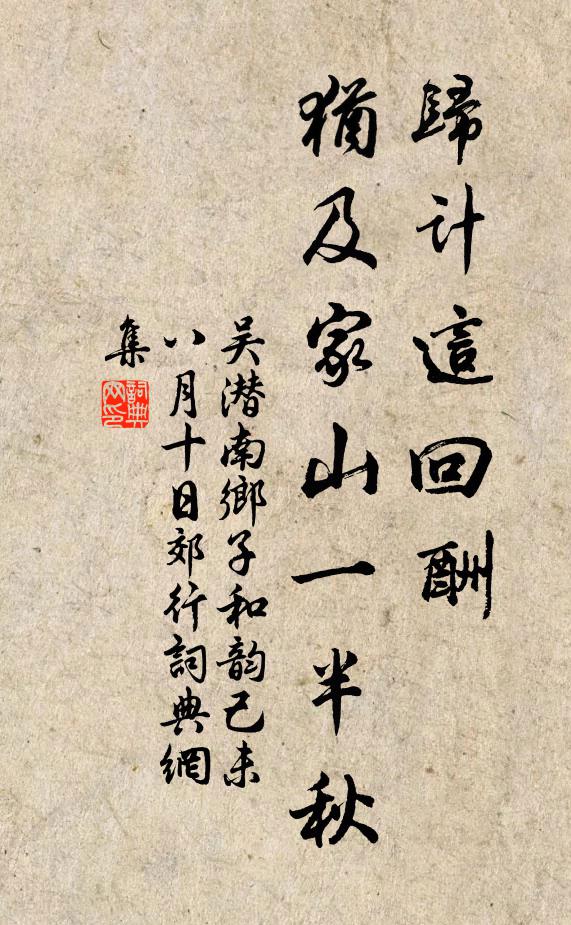 歸計這回酬
猶及家山一半秋
吴潛南鄉子和韵己未
八月十日郊行詞典網
集
詞典
网印